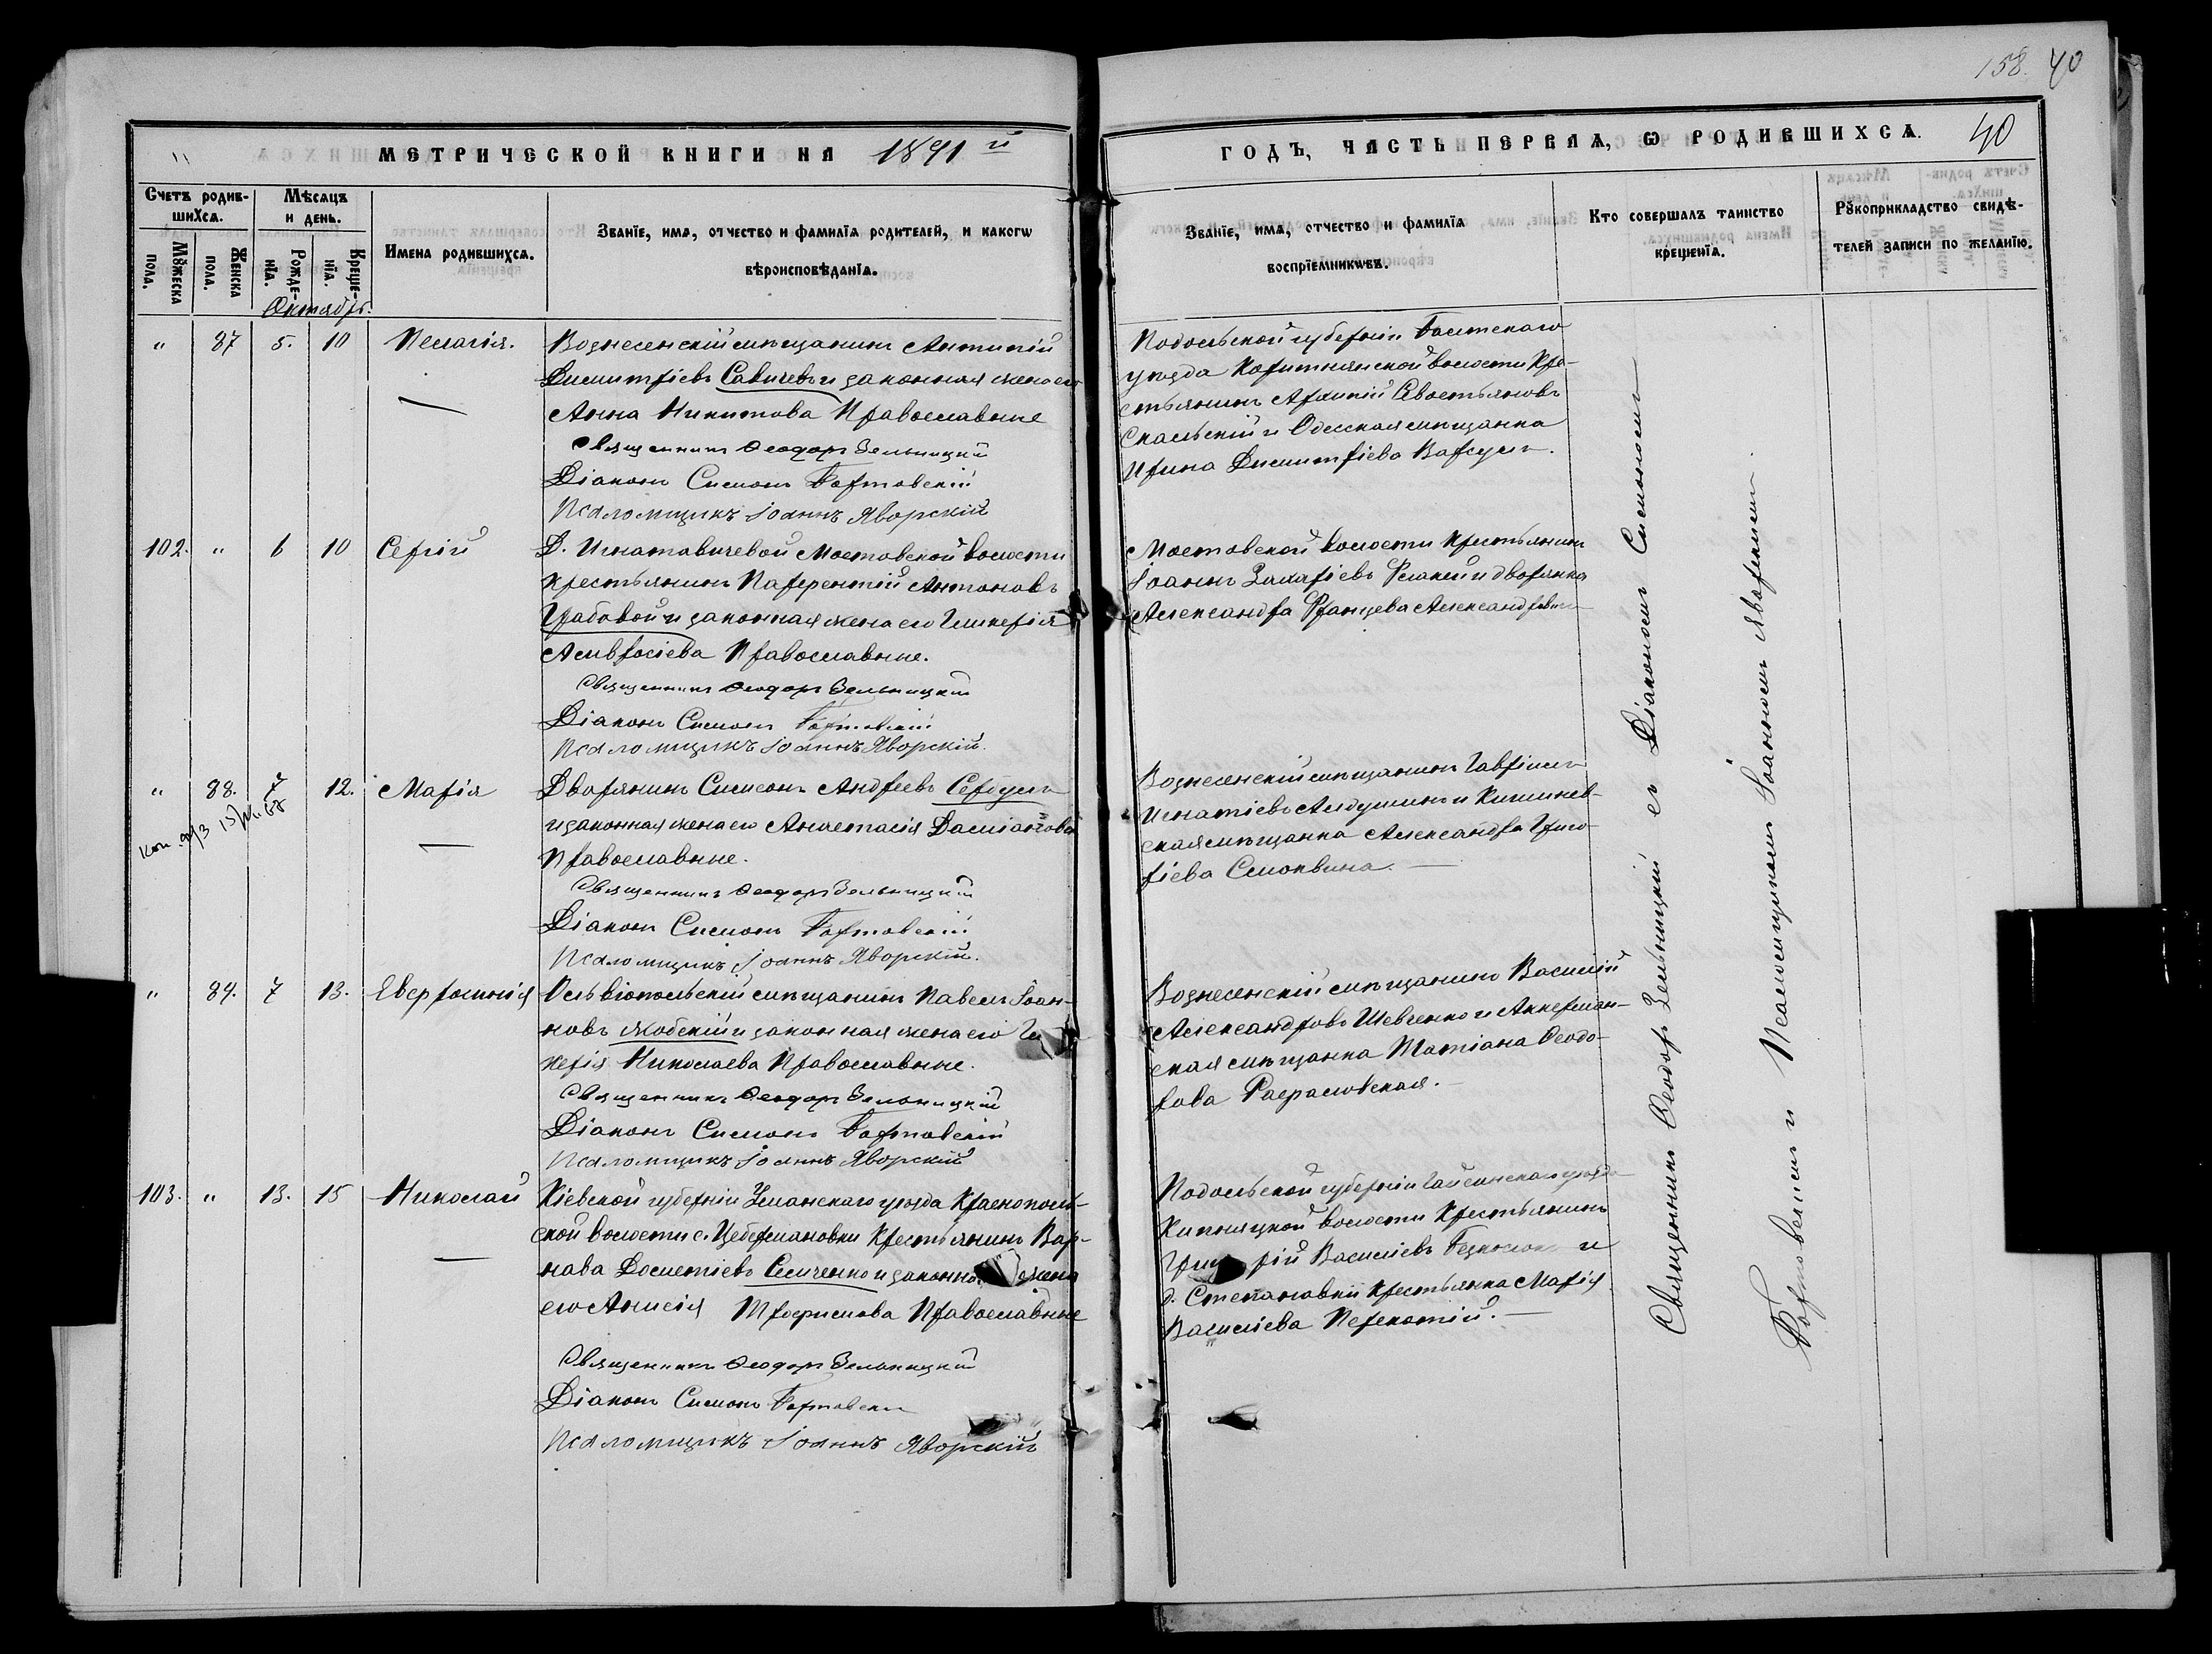 158. 40
МЕТРИЧЕСКОЙ КНИГИ НА 1891 й
ГОДЪ, ЧАСТЬ ПЕРВАЯ, Ѡ РОДИВШИХСѦ. 40
Счетъ родив-
шихсѧ.
Мѣсѧцъ
и день.
Мꙋжеска
пола.
Женска
пола.
Рожде-
нїѧ.
Креще-
нїѧ.
Имена родившихсѧ.
Званїе, имѧ, отчество и фамилїѧ родителей, и какогѡ
вѣроисповѣданїѧ.
Званїе, имѧ, отчество и фамилїѧ
воспрїемникѡвъ.
Кто совершалъ таинство
крещенїѧ.
Рꙋкоприкладство свидѣ-
телей записи по желанїю.
Октябрь.
" 87 5. 10 Пелагія.
Вознесенскій мѣщанинъ Антипій
Димитріевъ Савичевъ и законная жена его
Анна Никитова Православные
Священникъ Ѳеодоръ Зельницкій
Діаконъ Симонъ Бортовскій
Псаломщикъ Іоаннъ Яворскій
Подольской губерніи Балтскаго
уѣзда Корытнянской волости кре-
стьянинъ Архипій Севостьяновъ
Скальскій и Одесская мѣщанка
Ирина Димитріева Варсулъ.
102. " 6 10 Сергій
Д. Игнатовичевой Мостовской волости
крестьянинъ Парѳентій Антоновъ
Грабовой и законная жена его Гликерія
Амвросіева Православные.
Священникъ Ѳеодоръ Зельницкій
Діаконъ Симонъ Бортовскій
Псаломщикъ Іоаннъ Яворскій.
Мостовской волости крестьянинъ
Іоаннъ Захаріевъ и дворянка
Александра Францева
" 88. 7 12. Марія
Дворянинъ Симеонъ Андреевъ Середуы
и законная жена его Анастасія Даміанова
Православные.
Священникъ Ѳеодоръ Зельницкій
Діаконъ Симонъ Бортовскій
Псаломщикъ Іоаннъ Яворскій.
Вознесенскій мѣщанинъ Гавріилъ
Игнатіевъ Алдушинъ и Кишинев-
ская мѣщанка Александра Григо-
ріева Смоквина.
" 84. 7 13. Евфросинія
Ольвіопольскій мѣщанинъ Павелъ Іоан-
новъ Якобскій и законная жена его Гли
керія Николаева Православные.
Священникъ Ѳеодоръ Зельницкій
Діаконъ Симонъ Бортовскій
Псаломщикъ Іоаннъ Яворскій
Вознесенскій мѣщанинъ Василій
Александровъ Шевченко и Аккерман-
ская мѣщанка Татіана Ѳеодо-
рова Рафаловская.
103. " 13. 15 Николай
Кіевской губерніи Уманскаго уѣзда Краснополь-
ской волости с. Цебермановки крестьянинъ Вар-
нава Дометіевъ Семченко и законная жена
его Анисія Трофимова Православные
Священникъ Ѳеодоръ Зельницкій
Діаконъ Симонъ Бортовскій
Псаломщикъ Іоаннъ Яворскій
Подольской губерніи Гайсинскаго уѣзда
Кипняцкой волости крестьянинъ
Григорій Василіевъ и
д. Степановки крестьянка Марія
Василіева Перекотій.
Священникъ Ѳеодоръ Зельницкій съ Діакономъ Симономъ
Бортовскимъ и Псаломщикомъ Іоанномъ Яворскимъ.